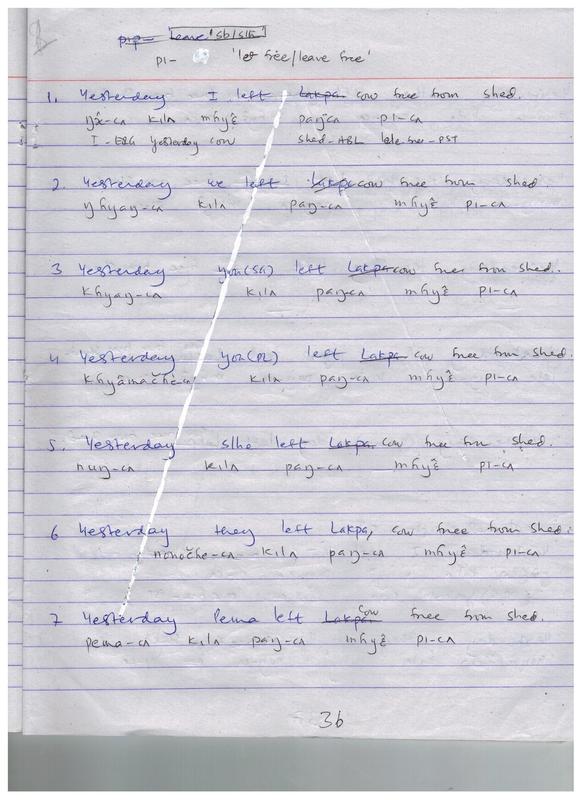 pip = leave 'sb/sth'
pɪ- 'let free/leave free'
1. Yesterday I left Lakpa cow free from shed.
ŋʌ̂-cʌ kilʌ mɦyɛ̂ paŋ-cʌ pɪ-cʌ
I-ERG yesterday cow shed-ABL free-PST
2. Yesterday we left Lakpa cow free from shed.
ŋɦyaŋ-cʌ kilʌ paŋ-cʌ mɦyɛ̂ pɪ-cʌ
3 Yesterday you(SG) left Lakpa cow free from shed.
kɦyaŋ-cʌ kilʌ paŋ-cʌ mɦyɛ̂ pɪ-cʌ
4 Yesterday you(PL) left Lakpa cow free from shed.
kɦyâmačhe-cʌ kilʌ paŋ-cʌ mɦyɛ̂ pɪ-cʌ
5. Yesterday s/he left Lakpa cow free from shed.
huŋ-cʌ kilʌ paŋ-cʌ mɦyɛ̂ pɪ-cʌ
6 Yesterday they left Lakpa, cow free from shed.
kilʌ paŋ-cʌ mɦyɛ̂ pɪ-cʌ
7 Yesterday Pema left Lakpa cow free from shed.
pema-cʌ kilʌ paŋ-cʌ mɦyɛ̂ pɪ-cʌ
36